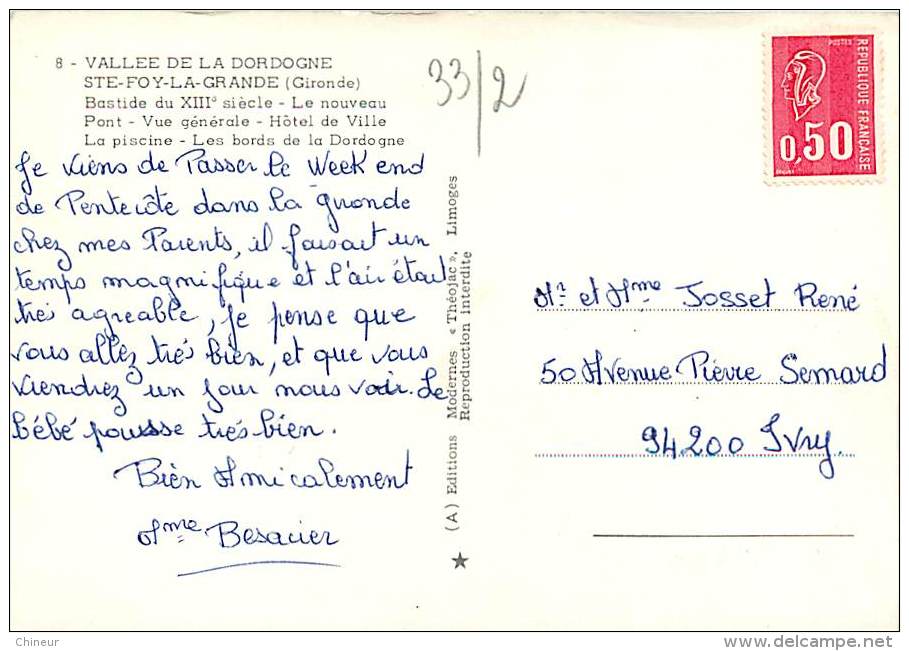 8 - VALLEE DE LA DORDOGNE
STE-FOY-LA-GRANDE (Gironde)
Bastide du XIIIe siècle - Le nouveau
Pont - Vue générale - Hôtel de Ville
La piscine - Les bords de la Dordogne
33/2
Je viens de Passer le Week end
de Pentecôte dans la gironde
chez mes Parents, il faisait un
temps magnifique et l'air était
très agreable, je pense que
vous allez très bien, et que vous
viendrez un jour nous voir. Le
bébé pousse très bien.
Bien Amicalement
Mme Besacier
(A) Editions Modernes « Théojac », Limoges
Reproduction interdite
POSTES
REPUBLIQUE FRANÇAISE
0,50
Mr et Mme Josset René
50 Avenue Pièrre Semard
94200 Ivry.
Chineur
www.delcampe.net